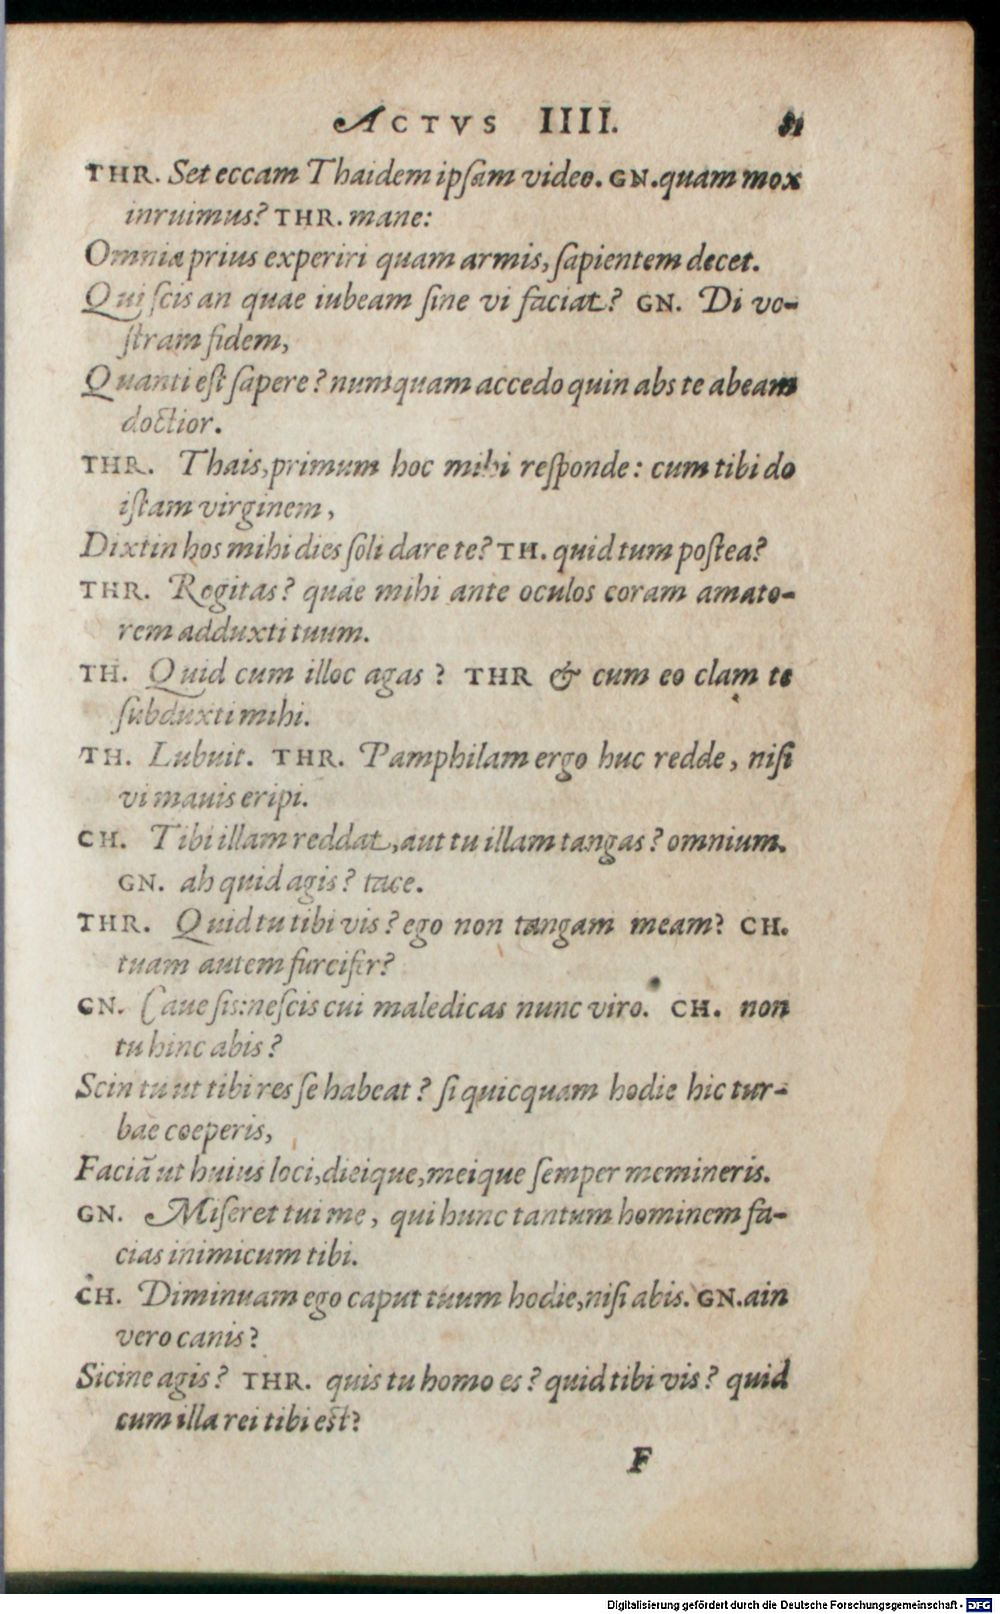 ACTVS IIII. 81
THR. Set eccam Thaidem ipsam video. GN. quam mox
inruimus? THR. mane:
Omnia prius experiri quam armis, sapientem decet.
Qui scis an quae iubeam sine vi faciat? GN. Di vo-
stram fidem,
Quanti est sapere? numquam accedo quin abs te abeam
doctior.
THR. Thais, primum hoc mihi responde: cum tibi do
istam virginem,
Dixtin hos mihi dies soli dare te? TH. quid tum postea?
THR. Rogitas? quae mihi ante oculos coram amato-
rem adduxti tuum.
TH. Quid cum illoc agas? THR & cum eo clam te
subduxti mihi.
TH. Lubuit. THR. Pamphilam ergo huc redde, nisi
vi mauis eripi.
CH. Tibi illam reddat, aut tu illam tangas? omnium.
GN. ah quid agis? tace.
THR. Quid tu tibi vis? ego non tangam meam? CH.
tuam autem furcifer?
GN. Caue sis: nescis cui maledicas nunc viro. CH. non
tu hinc abis?
Scin tu ut tibi res se habeat? si quicquam hodie hic tur-
bae coeperis,
Faciā ut huius loci, dieique, meique semper memineris.
GN. Miseret tui me, qui hunc tantum hominem fa-
cias inimicum tibi.
CH. Diminuam ego caput tuum hodie, nisi abis. GN. ain
vero canis?
Sicine agis? THR. quis tu homo es? quid tibi vis? quid
cum illa rei tibi est?
F
Digitalisierung gefördert durch die Deutsche Forschungsgemeinschaft - DFG